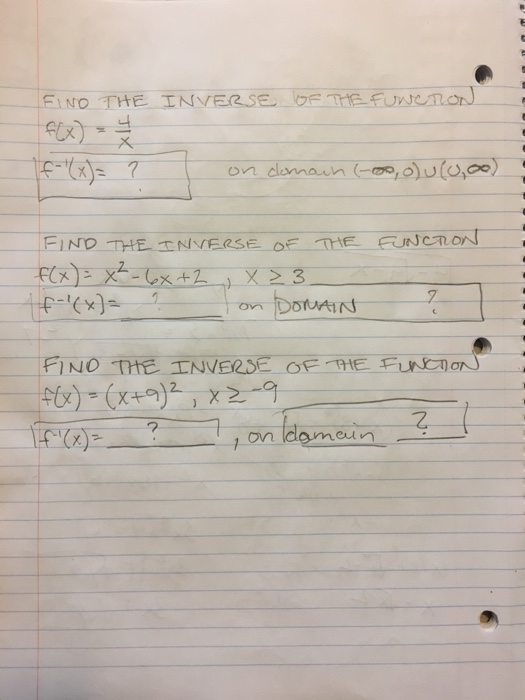 FIND THE INVERSE OF THE FUNCTION
f(x) = 4/x
f⁻¹(x) = ? on domain (-∞, 0) ∪ (0, ∞)
FIND THE INVERSE OF THE FUNCTION
f(x) = x² - 6x + 2 , x ≥ 3
f⁻¹(x) = ? on DOMAIN ?
FIND THE INVERSE OF THE FUNCTION
f(x) = (x+9)² , x ≥ -9
f⁻¹(x) = ? , on domain ?